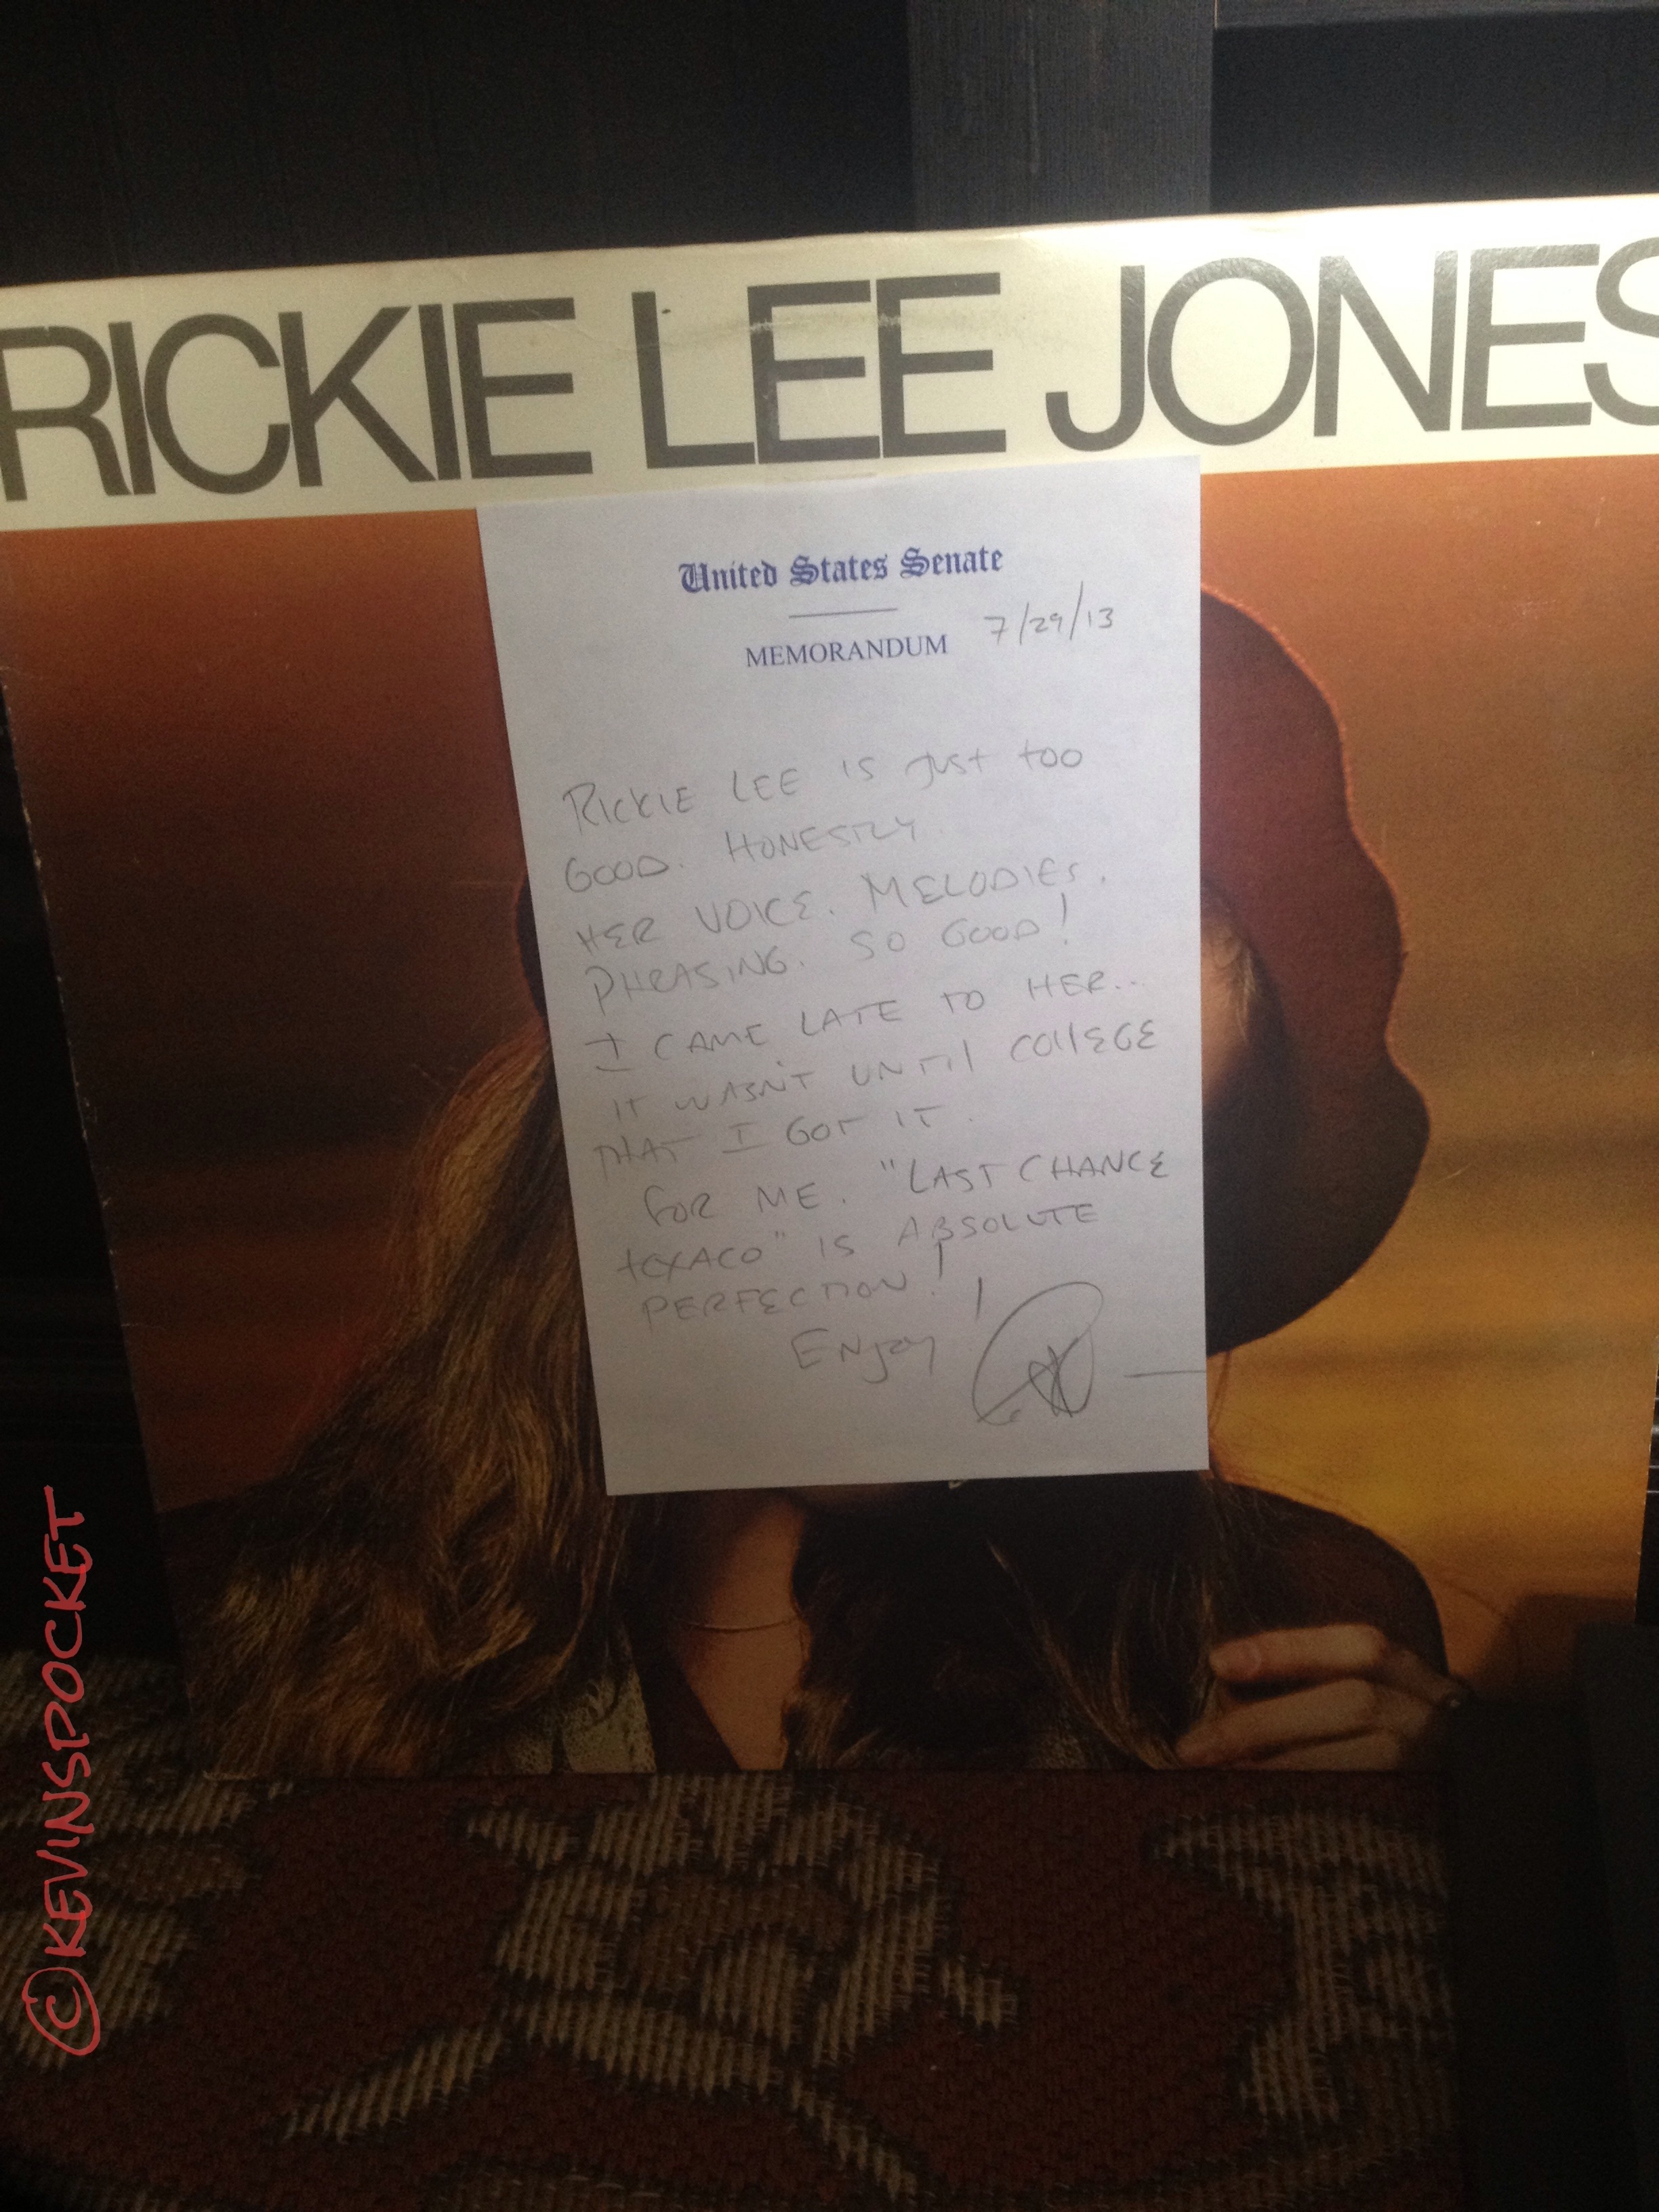 RICKIE LEE JONES
United States Senate
MEMORANDUM 7/29/13
RICKIE LEE IS JUST TOO
GOOD. HONESTLY.
HER VOICE. MELODIES.
PHRASING. SO GOOD!
I CAME LATE TO HER..
IT WASN'T UNTIL COLLEGE
THAT I GOT IT.
FOR ME. "LAST CHANCE
TEXACO" IS ABSOLUTE
PERFECTION!
ENJOY!
©KEVINSPOCKET